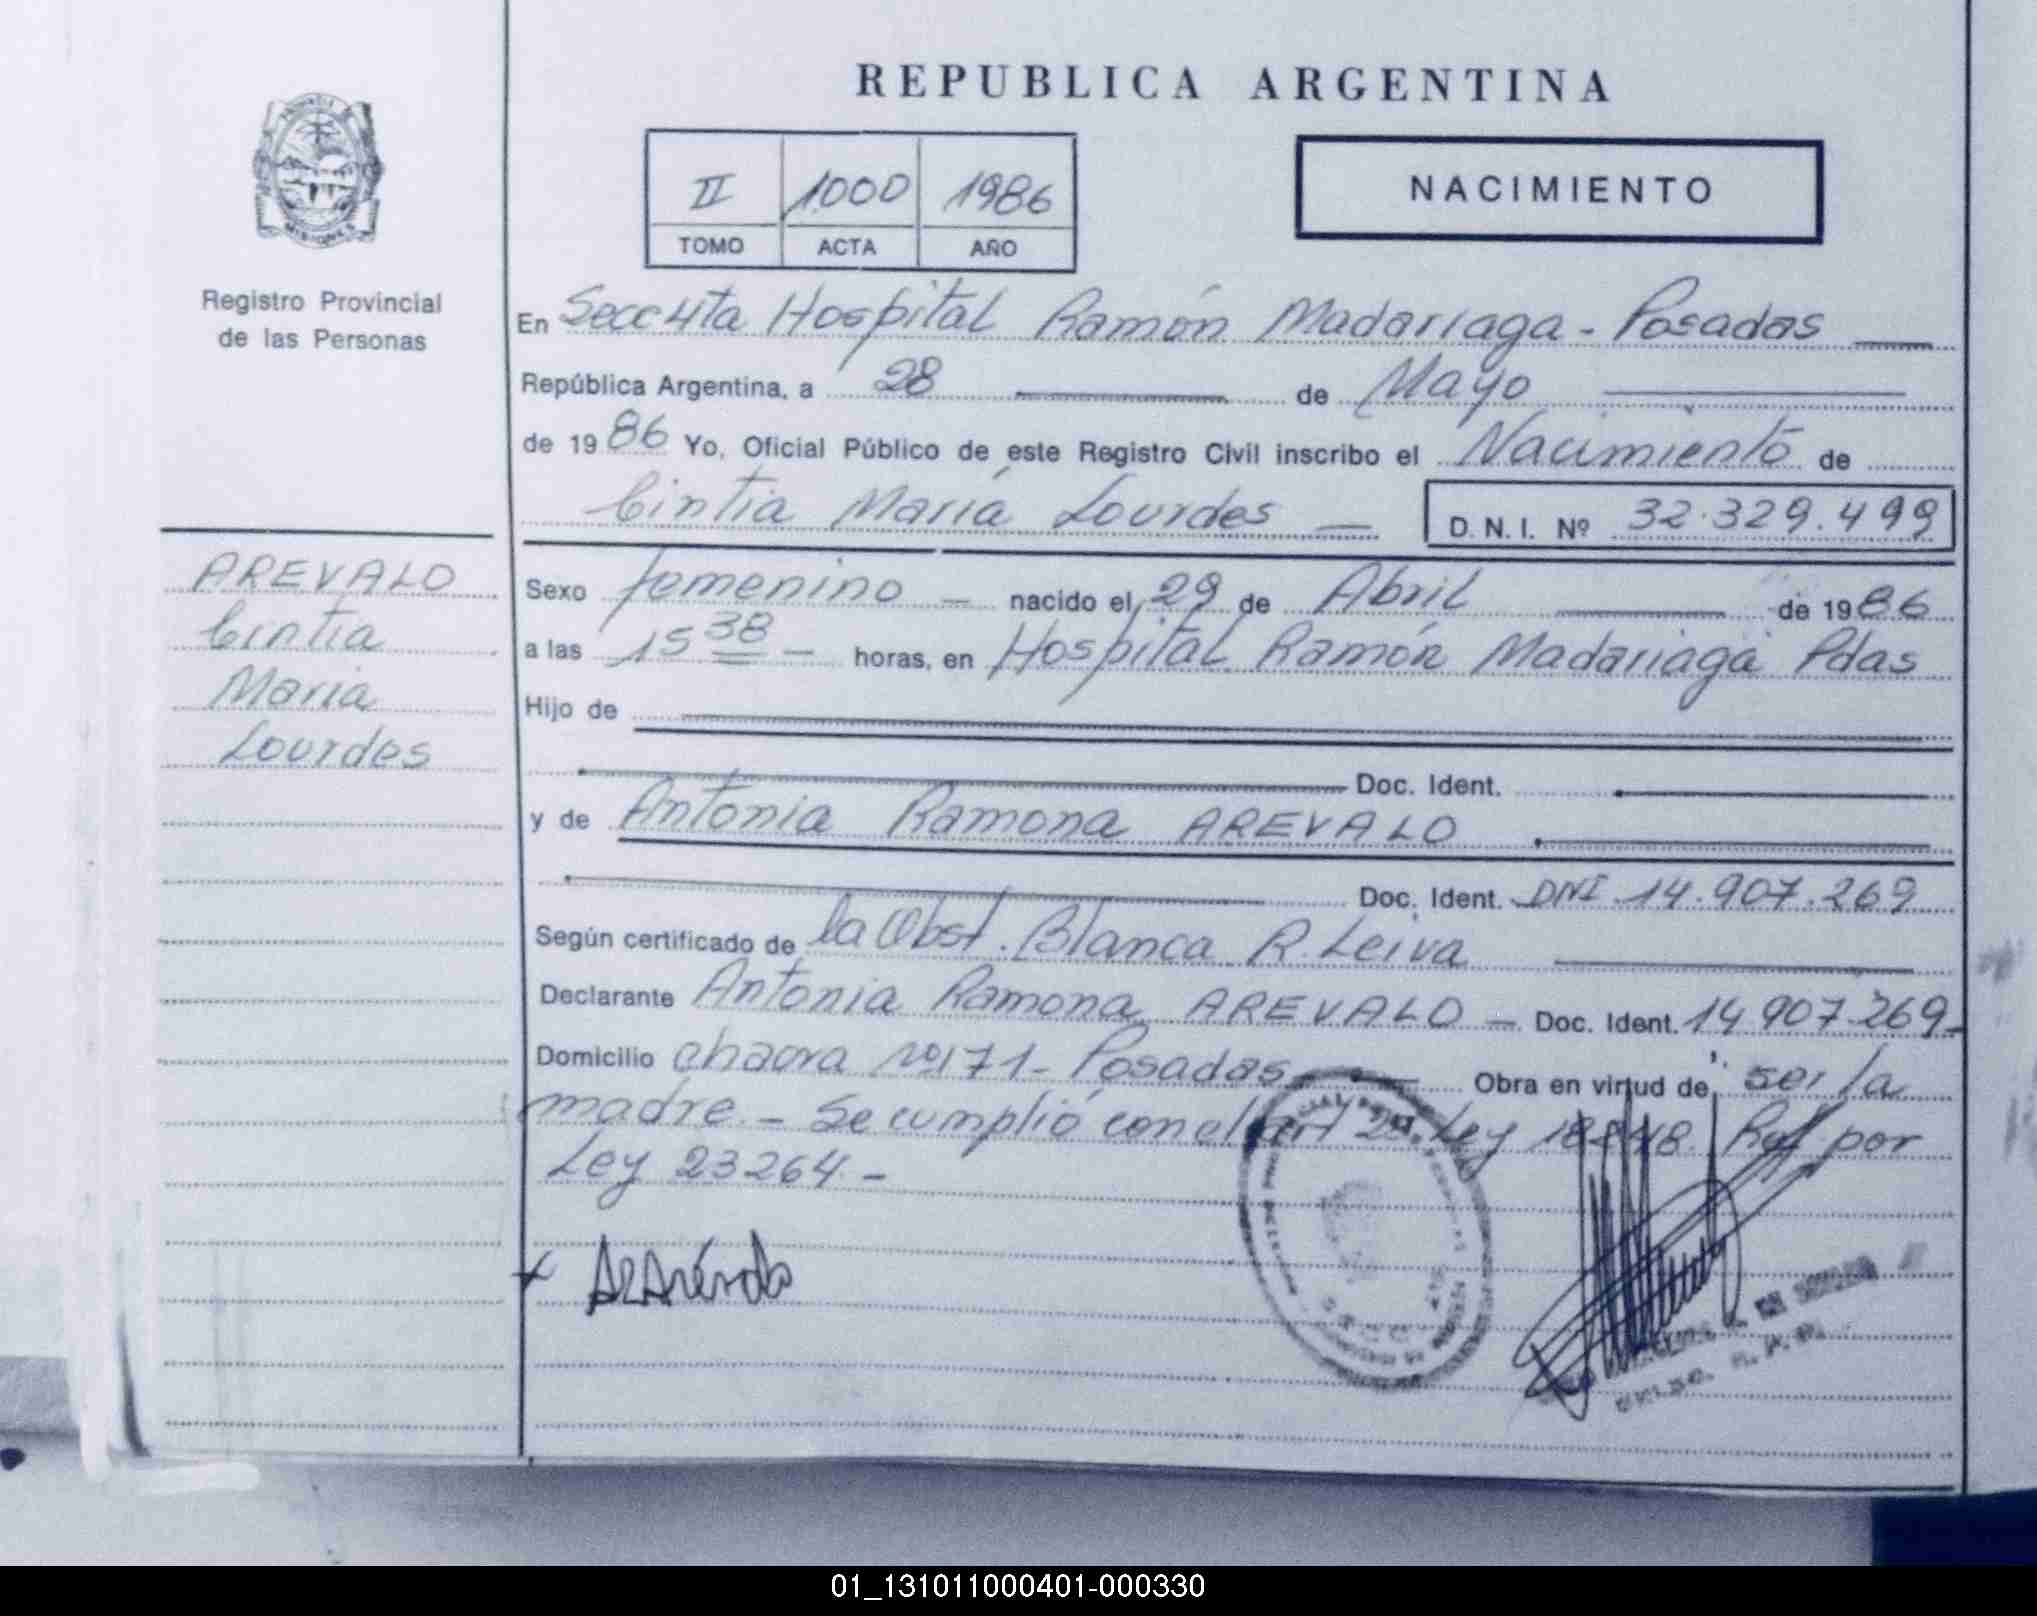 REPUBLICA ARGENTINA
II 1000 1986
TOMO ACTA AÑO
NACIMIENTO
Registro Provincial
de las Personas
En Secc 4ta Hospital Ramón Madariaga - Posadas
República Argentina, a 28 de Mayo
de 1986 Yo, Oficial Público de este Registro Civil inscribo el Nacimiento de
Cintia María Lourdes D. N. I. Nº 32.329.499
AREVALO
Cintia
Maria
Lourdes
Sexo femenino - nacido el 29 de Abril de 1986
a las 15 38 - horas, en Hospital Ramón Madariaga Pdas
Hijo de
Doc. Ident.
y de Antonia Ramona AREVALO
Doc. Ident. DNI 14.907.269
Según certificado de la Obst. Blanca R. Leiva
Declarante Antonia Ramona AREVALO - Doc. Ident. 14.907.269-
Domicilio chacra Nº 171 - Posadas Obra en virtud de ser la
madre. - Se cumplió con el art Ley por
Ley 23264 -
01_131011000401-000330